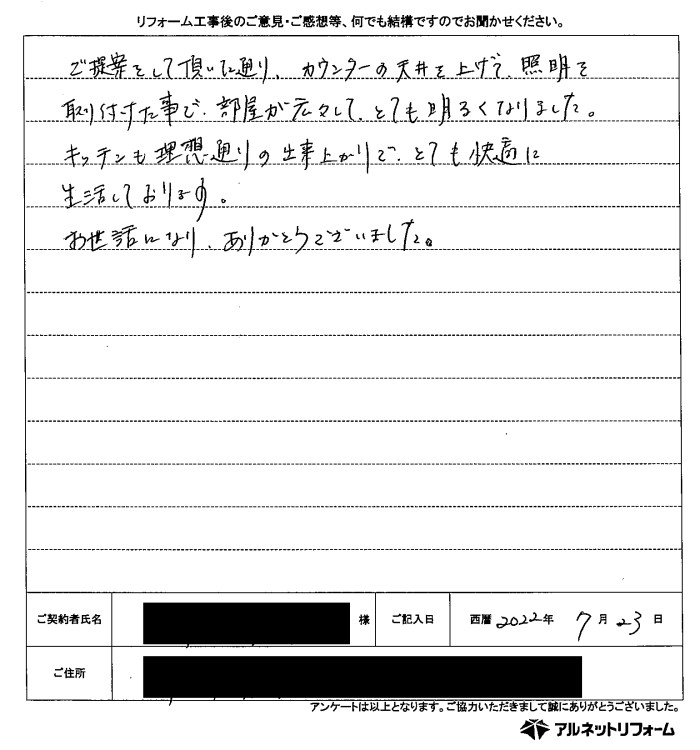 リフォーム工事後のご意見・ご感想等、何でも結構ですのでお聞かせください。
ご提案をして頂いた通り、カウンターの天井を上げて、照明を
取り付けた事で、部屋が広々して、とても明るくなりました。
キッチンも理想通りの出来上がりで、とても快適に
生活しております。
お世話になり、ありがとうございました。
ご契約者氏名 様 ご記入日 西暦2022年 7月23日
ご住所
アンケートは以上となります。ご協力いただきまして誠にありがとうございました。
アルネットリフォーム